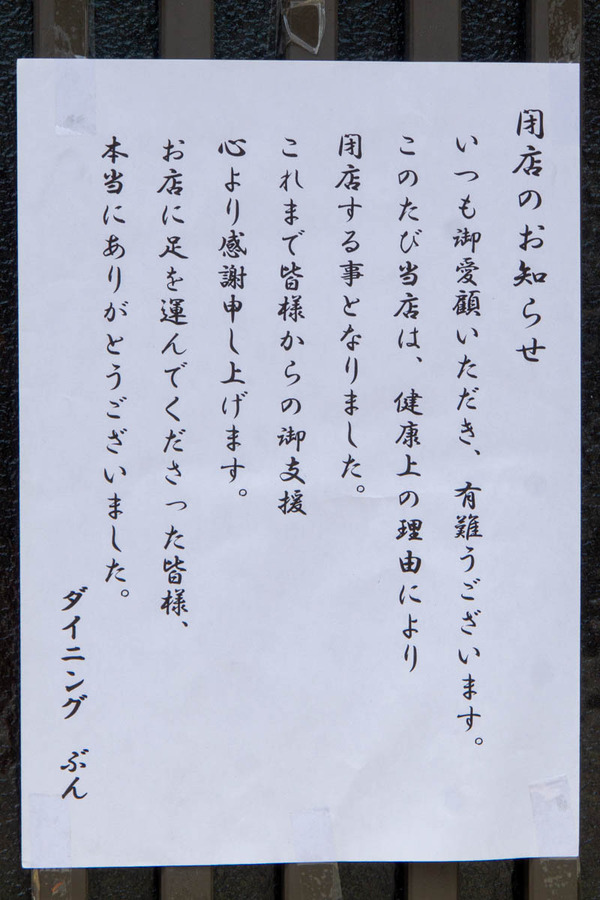 閉店のお知らせ
いつも御愛顧いただき、有難うございます。
このたび当店は、健康上の理由により
閉店する事となりました。
これまで皆様からの御支援
心より感謝申し上げます。
お店に足を運んでくださった皆様、
本当にありがとうございました。
ダイニング　ぶん